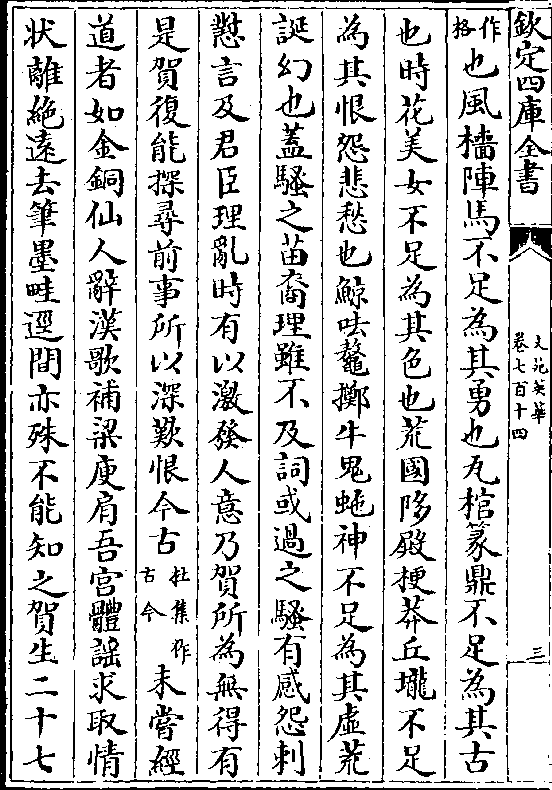 欽定四庫全書
文苑英華
卷七百十四
三
作格也風檣陣馬不足為其勇也瓦棺篆鼎不足為其古
也時花美女不足為其色也荒國陊殿梗莽丘壠不足
為其恨怨悲愁也鯨呿鼇擲牛鬼蛇神不足為其虛荒
誕幻也蓋騷之苗裔理雖不及詞或過之騷有感怨刺
懟言及君臣理亂時有以激發人意乃賀所為無得有
是賀復能探尋前事所以深歎恨今古杜集作古今未嘗經
道者如金銅仙人辭漢歌補梁庾肩吾宮體謠求取情
狀離絶遠去筆墨畦逕間亦殊不能知之賀生二十七